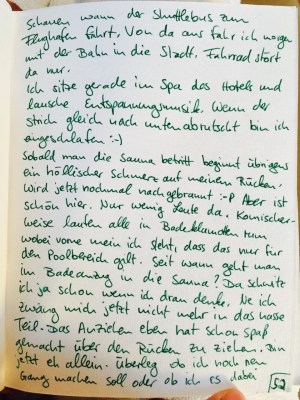 Schauen wann der Shuttlebus zum
Flughafen fährt. Von da aus fahr ich morgen
mit der Bahn in die Stadt. Fahrrad stört
da nur.
Ich sitze gerade im Spa des Hotels und
lausche Entspannungsmusik. Wenn der
Strich gleich nach unten abrutscht bin ich
eingeschlafen :-)
Sobald man die Sauna betritt beginnt übrigens
ein höllischer Schmerz auf meinem Rücken.
Wird jetzt nochmal nachgebrannt :-P Aber ist
schön hier. Nur wenig Leute da. Komischer-
weise laufen alle in Badeklamotten rum
wobei vorne mein ich steht, dass das nur für
den Poolbereich gilt. Seit wann geht man
im Badeanzug in die Sauna? Da schwitz
ich ja schon wenn ich dran denke. Ne ich
zwäng mich jetzt nicht mehr in das nasse
Teil. Das Anziehen eben hat schon Spaß
gemacht über den Rücken zu ziehen. Bin
jetzt eh allein. Überleg ob ich noch nen
Gang machen soll oder ob ich es dabei
52